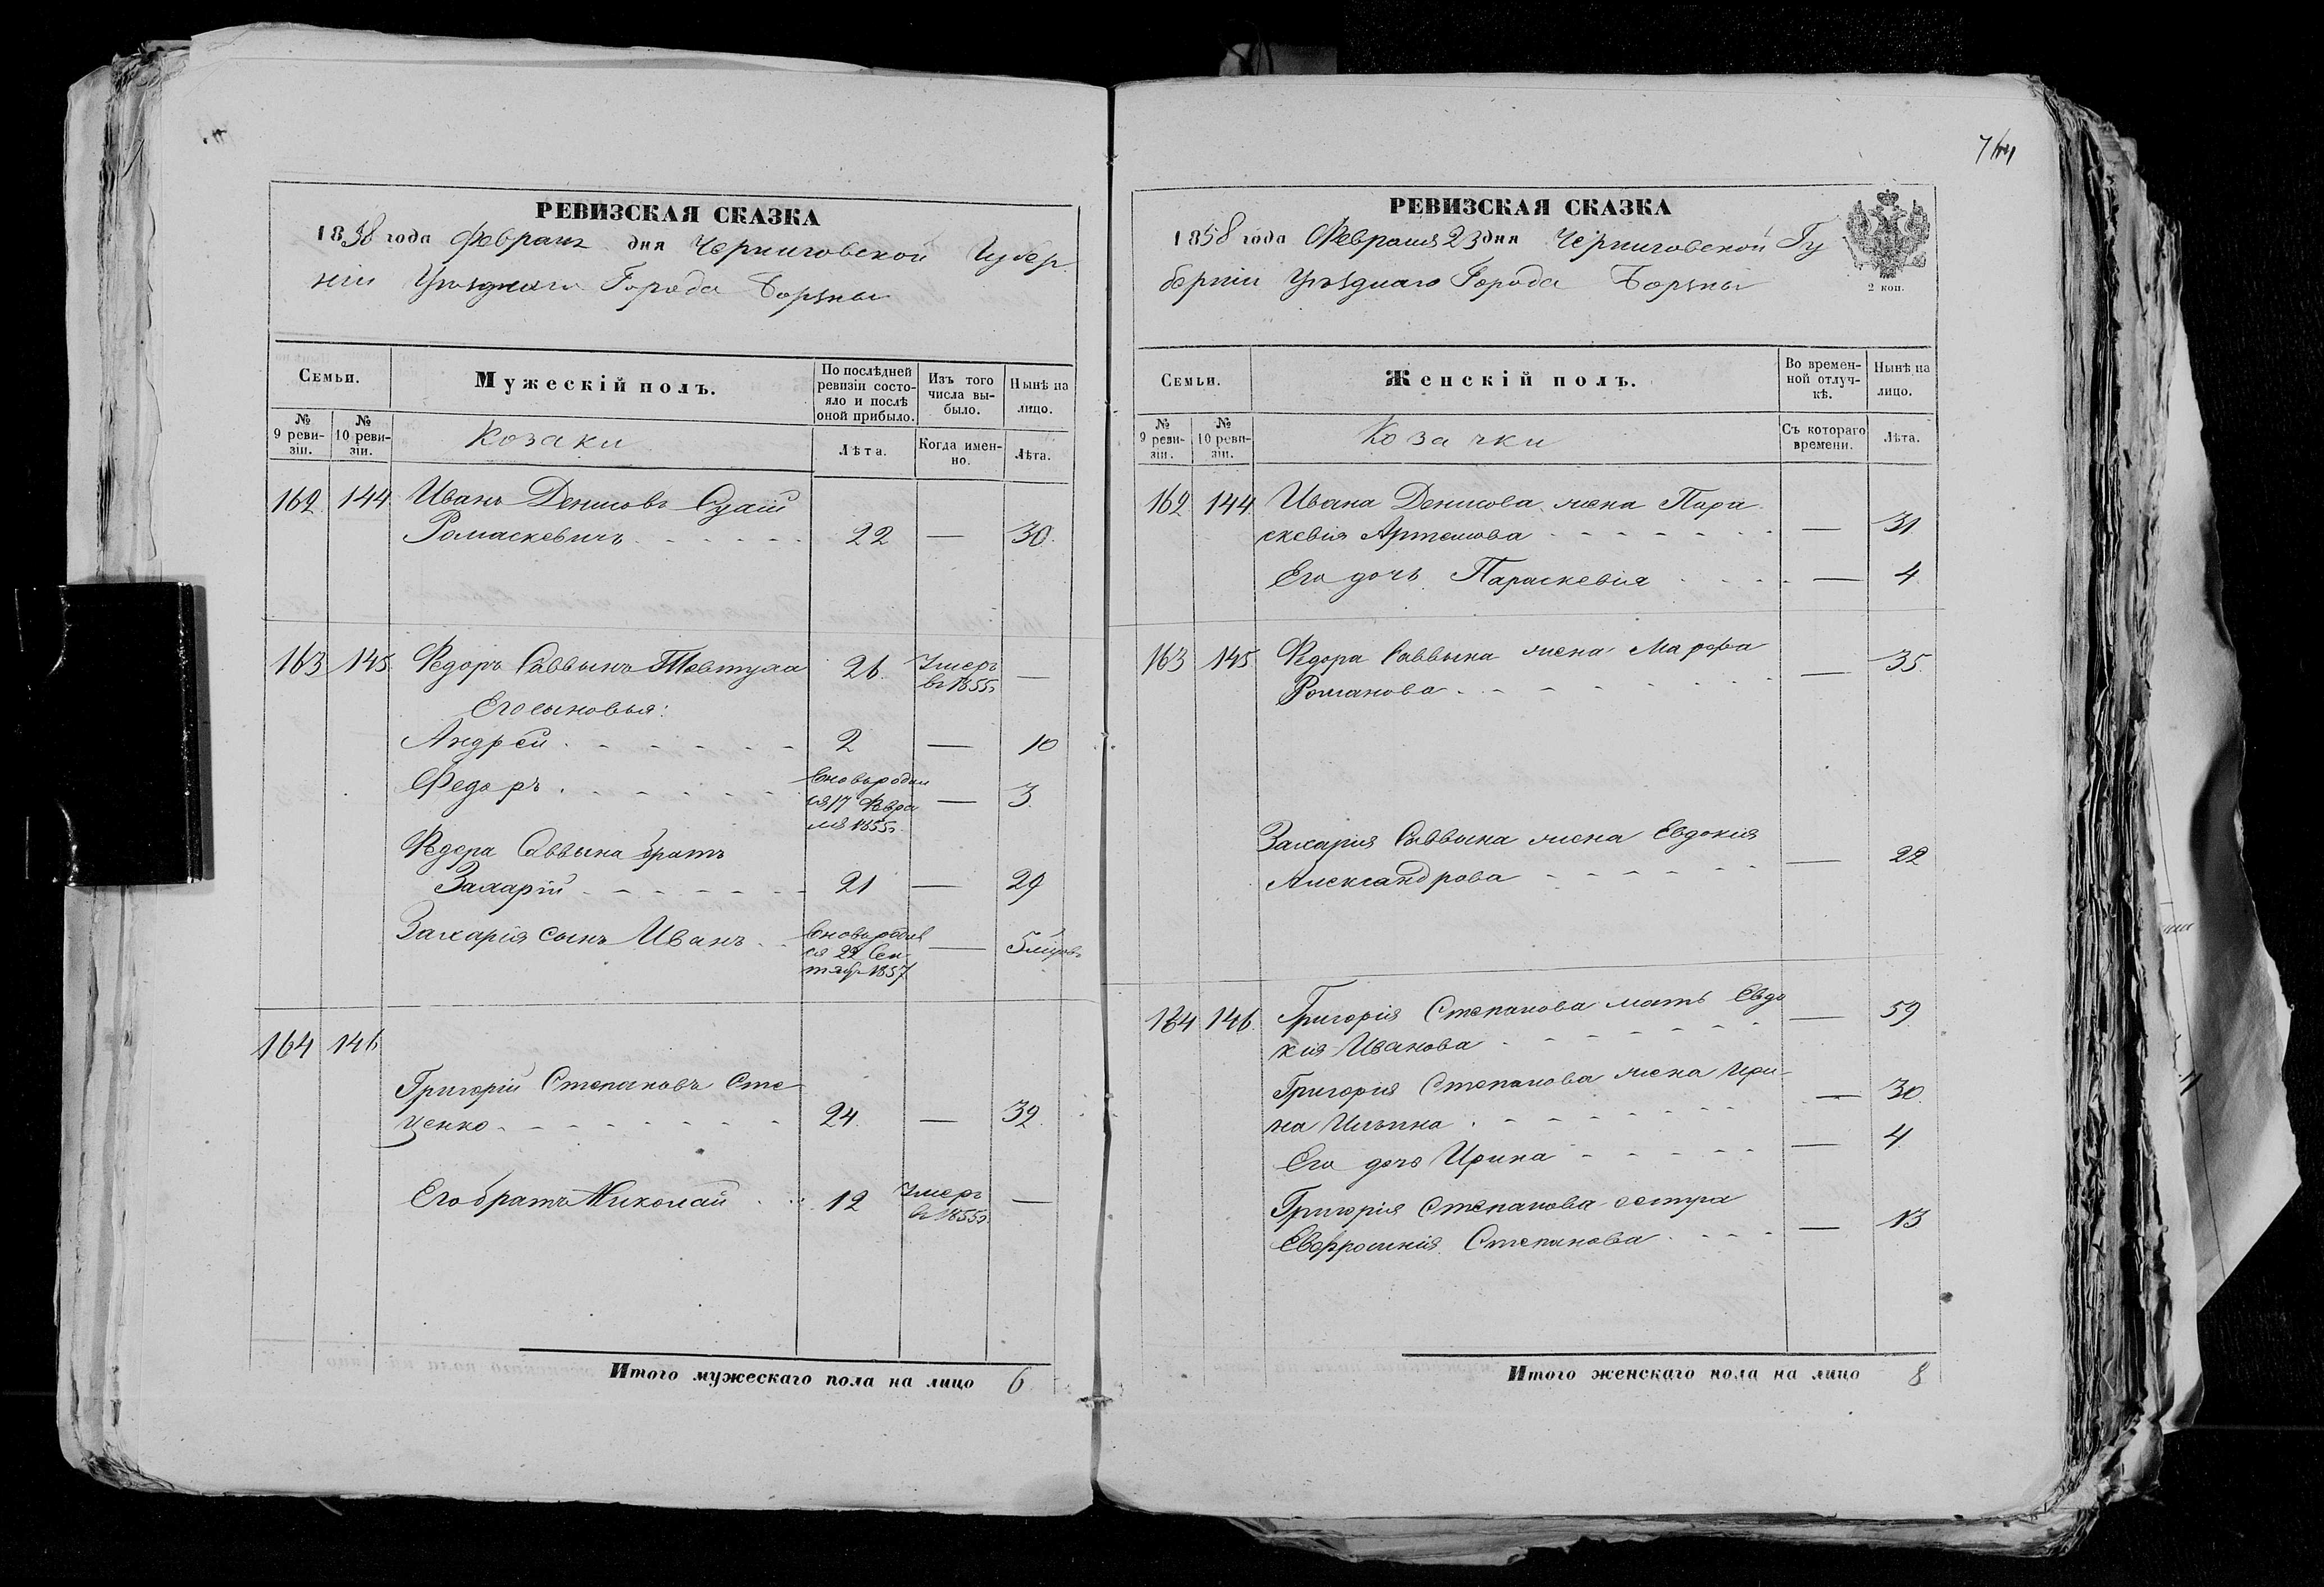 РЕВИЗСКАЯ СКАЗКА
1858 года Февраля дня Черниговской Губер
ніи Уѣзднаго Города Борзны
Семьи.
Мужескій полъ.
По послѣдней ревизіи состояло и послѣ оной прибыло.
Изъ того числа выбыло.
Нынѣ на лицо.
№ 9 ревизіи.
№ 10 ревизіи.
Козаки
Лѣта.
Когда именно.
Лѣта.
162 144 Иванъ Денисовъ
Ромаскевичъ 22 — 30.
163 145. Федоръ Саввынъ Товтуха 26. Умеръ —
въ 1855
Его сыновья:
Андрей 2 — 10
Федоръ Вновь родил
ся 17 Февра — 3
ля 1855.
Федора Саввына братъ
Захарій 21 — 29
Захарія сынъ Иванъ Вновь родил
ся 22 Сен — 5 мѣцовъ
тяб. 1857
164 146
Григорій Степановъ Сте
ценко 24. — 32.
Его братъ Николай 12 Умеръ —
въ 1855.
Итого мужескаго пола на лицо 6
764
РЕВИЗСКАЯ СКАЗКА
1858 года Февраля 23 дня Черниговской Гу
берніи Уѣзднаго Города Борзны
2 коп.
Семьи.
Женскій полъ.
Во временной отлучкѣ.
Нынѣ на лицо.
№ 9 ревизіи.
№ 10 ревизіи.
Козачки
Съ котораго времени.
Лѣта.
162 144. Ивана Денисова жена Пара
скевія Артемова — 31
Его дочь Параскевія — 4
163 145 Федора Саввына жена Марфа — 35.
Романова
Захарія Саввына жена Евдокія — 22
Александрова
164 146. Григорія Степанова мать Евдо — 59
кія Иванова
Григорія Степанова жена Ири — 30.
на Ильина
Его дочь Ирина — 4
Григорія Степанова сестра
Евфросинія Степанова — 13
Итого женскаго пола на лицо 8